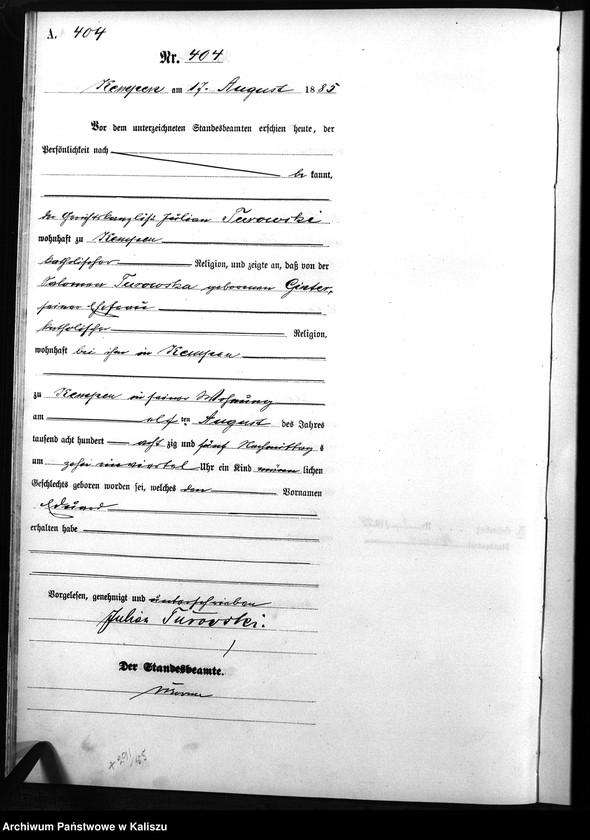 A. 404
Nr. 404
Kempen am 17. August 1885
Vor dem unterzeichneten Standesbeamten erschien heute, der
Persönlichkeit nach
bekannt,
der Gerichtskanzlist Julian Turowski
wohnhaft zu Kempen
katholischer Religion, und zeigte an, daß von der
Salomea Turowska geborenen Ginter,
seiner Ehefrau
katholischer Religion,
wohnhaft bei ihm in Kempen
zu Kempen in seiner Wohnung
am elften August des Jahres
tausend acht hundert achtzig und fünf Nachmittags
um zehn ein viertel Uhr ein Kind männlichen
Geschlechts geboren worden sei, welches den Vornamen
Eduard
erhalten habe
Vorgelesen, genehmigt und unterschrieben
Julian Turowski.
Der Standesbeamte.
Archiwum Państwowe w Kaliszu